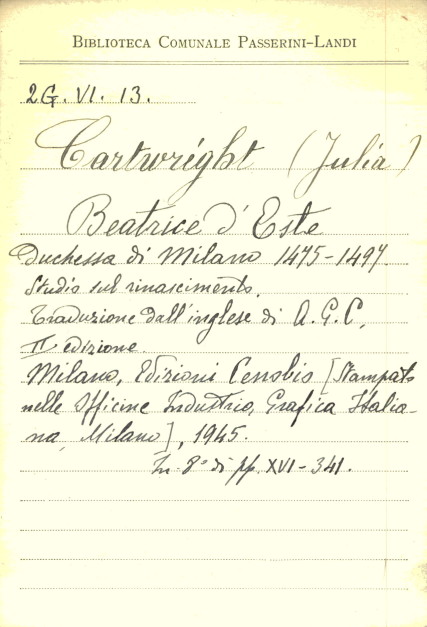 BIBLIOTECA COMUNALE PASSERINI-LANDI
2G. VI. 13.
Cartwright (Julia)
Beatrice d'Este
Duchessa di Milano 1475-1497.
Studio sul rinascimento.
Traduzione dall'inglese di A.G.C.
IIª edizione
Milano, Edizioni Cenobio [Stampato
nelle Officine Industria Grafica Italia-
na, Milano], 1945.
In-8º di pp. XVI-341.